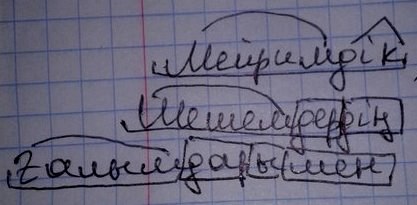 Мейрімдік
Шешендердің
Ғалымдарымен